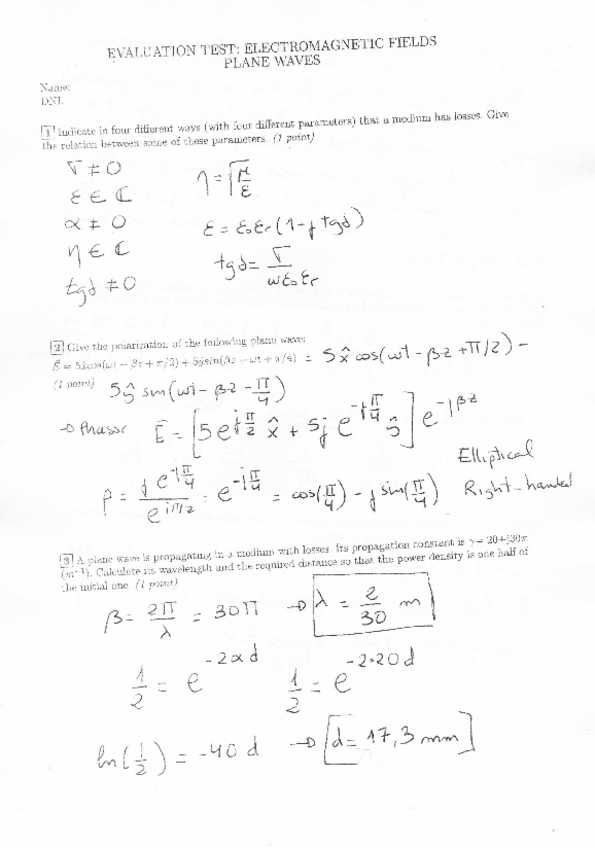 EVALUATION TEST: ELECTROMAGNETIC FIELDS
PLANE WAVES
Name:
DNI:
1 Indicate in four different ways (with four different parameters) that a medium has losses. Give
the relation between some of these parameters. (1 point)
σ ≠ 0
ε ∈ ℂ
α ≠ 0
η ∈ ℂ
tgδ ≠ 0
η = √(μ/ε)
ε = ε₀εr (1 - j tgδ)
tgδ = σ/(ωε₀εr)
2 Give the polarization of the following plane wave:
E = 5x̂cos(ωt − βz + π/2) + 5ŷsin(βz − ωt + π/4) = 5x̂ cos(ωt - βz + π/2) -
(1 point) 5ŷ sin(ωt - βz - π/4)
→ Phasor E = [5e^(jπ/2) x̂ + 5j e^(-jπ/4) ŷ] e^(-jβz)
Elliptical
Right-handed
ρ = j e^(-jπ/4) / e^(jπ/2) = e^(-jπ/4) = cos(π/4) - j sin(π/4)
3 A plane wave is propagating in a medium with losses. Its propagation constant is γ = 20+j30π
(m⁻¹). Calculate its wavelength and the required distance so that the power density is one half of
the initial one. (1 point)
β = 2π/λ = 30π → λ = 2/30 m
1/2 = e^(-2αd) 1/2 = e^(-2·20d)
ln(1/2) = -40 d → d = 17,3 mm